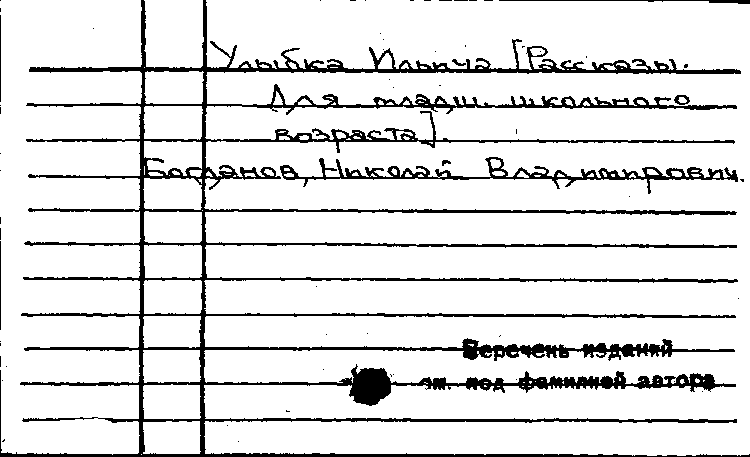 Улыбка Ильича [Рассказы.
Для младш. школьного
возраста].
Богданов, Николай Владимирович.
Перечень изданий
см. под фамилией автора